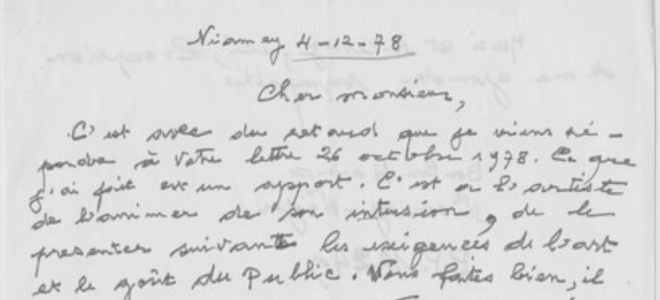 Niamey 4-12-78
Cher monsieur,
C'est avec du retard que je viens ré-
pondre à votre lettre 26 octobre 1978. Ce que
j'ai fait est un apport. C'est à l'artiste
de l'animer de son intusion, de le
presenter suivant les exigences de l'art
et le goût du Public. Vous faites bien, il